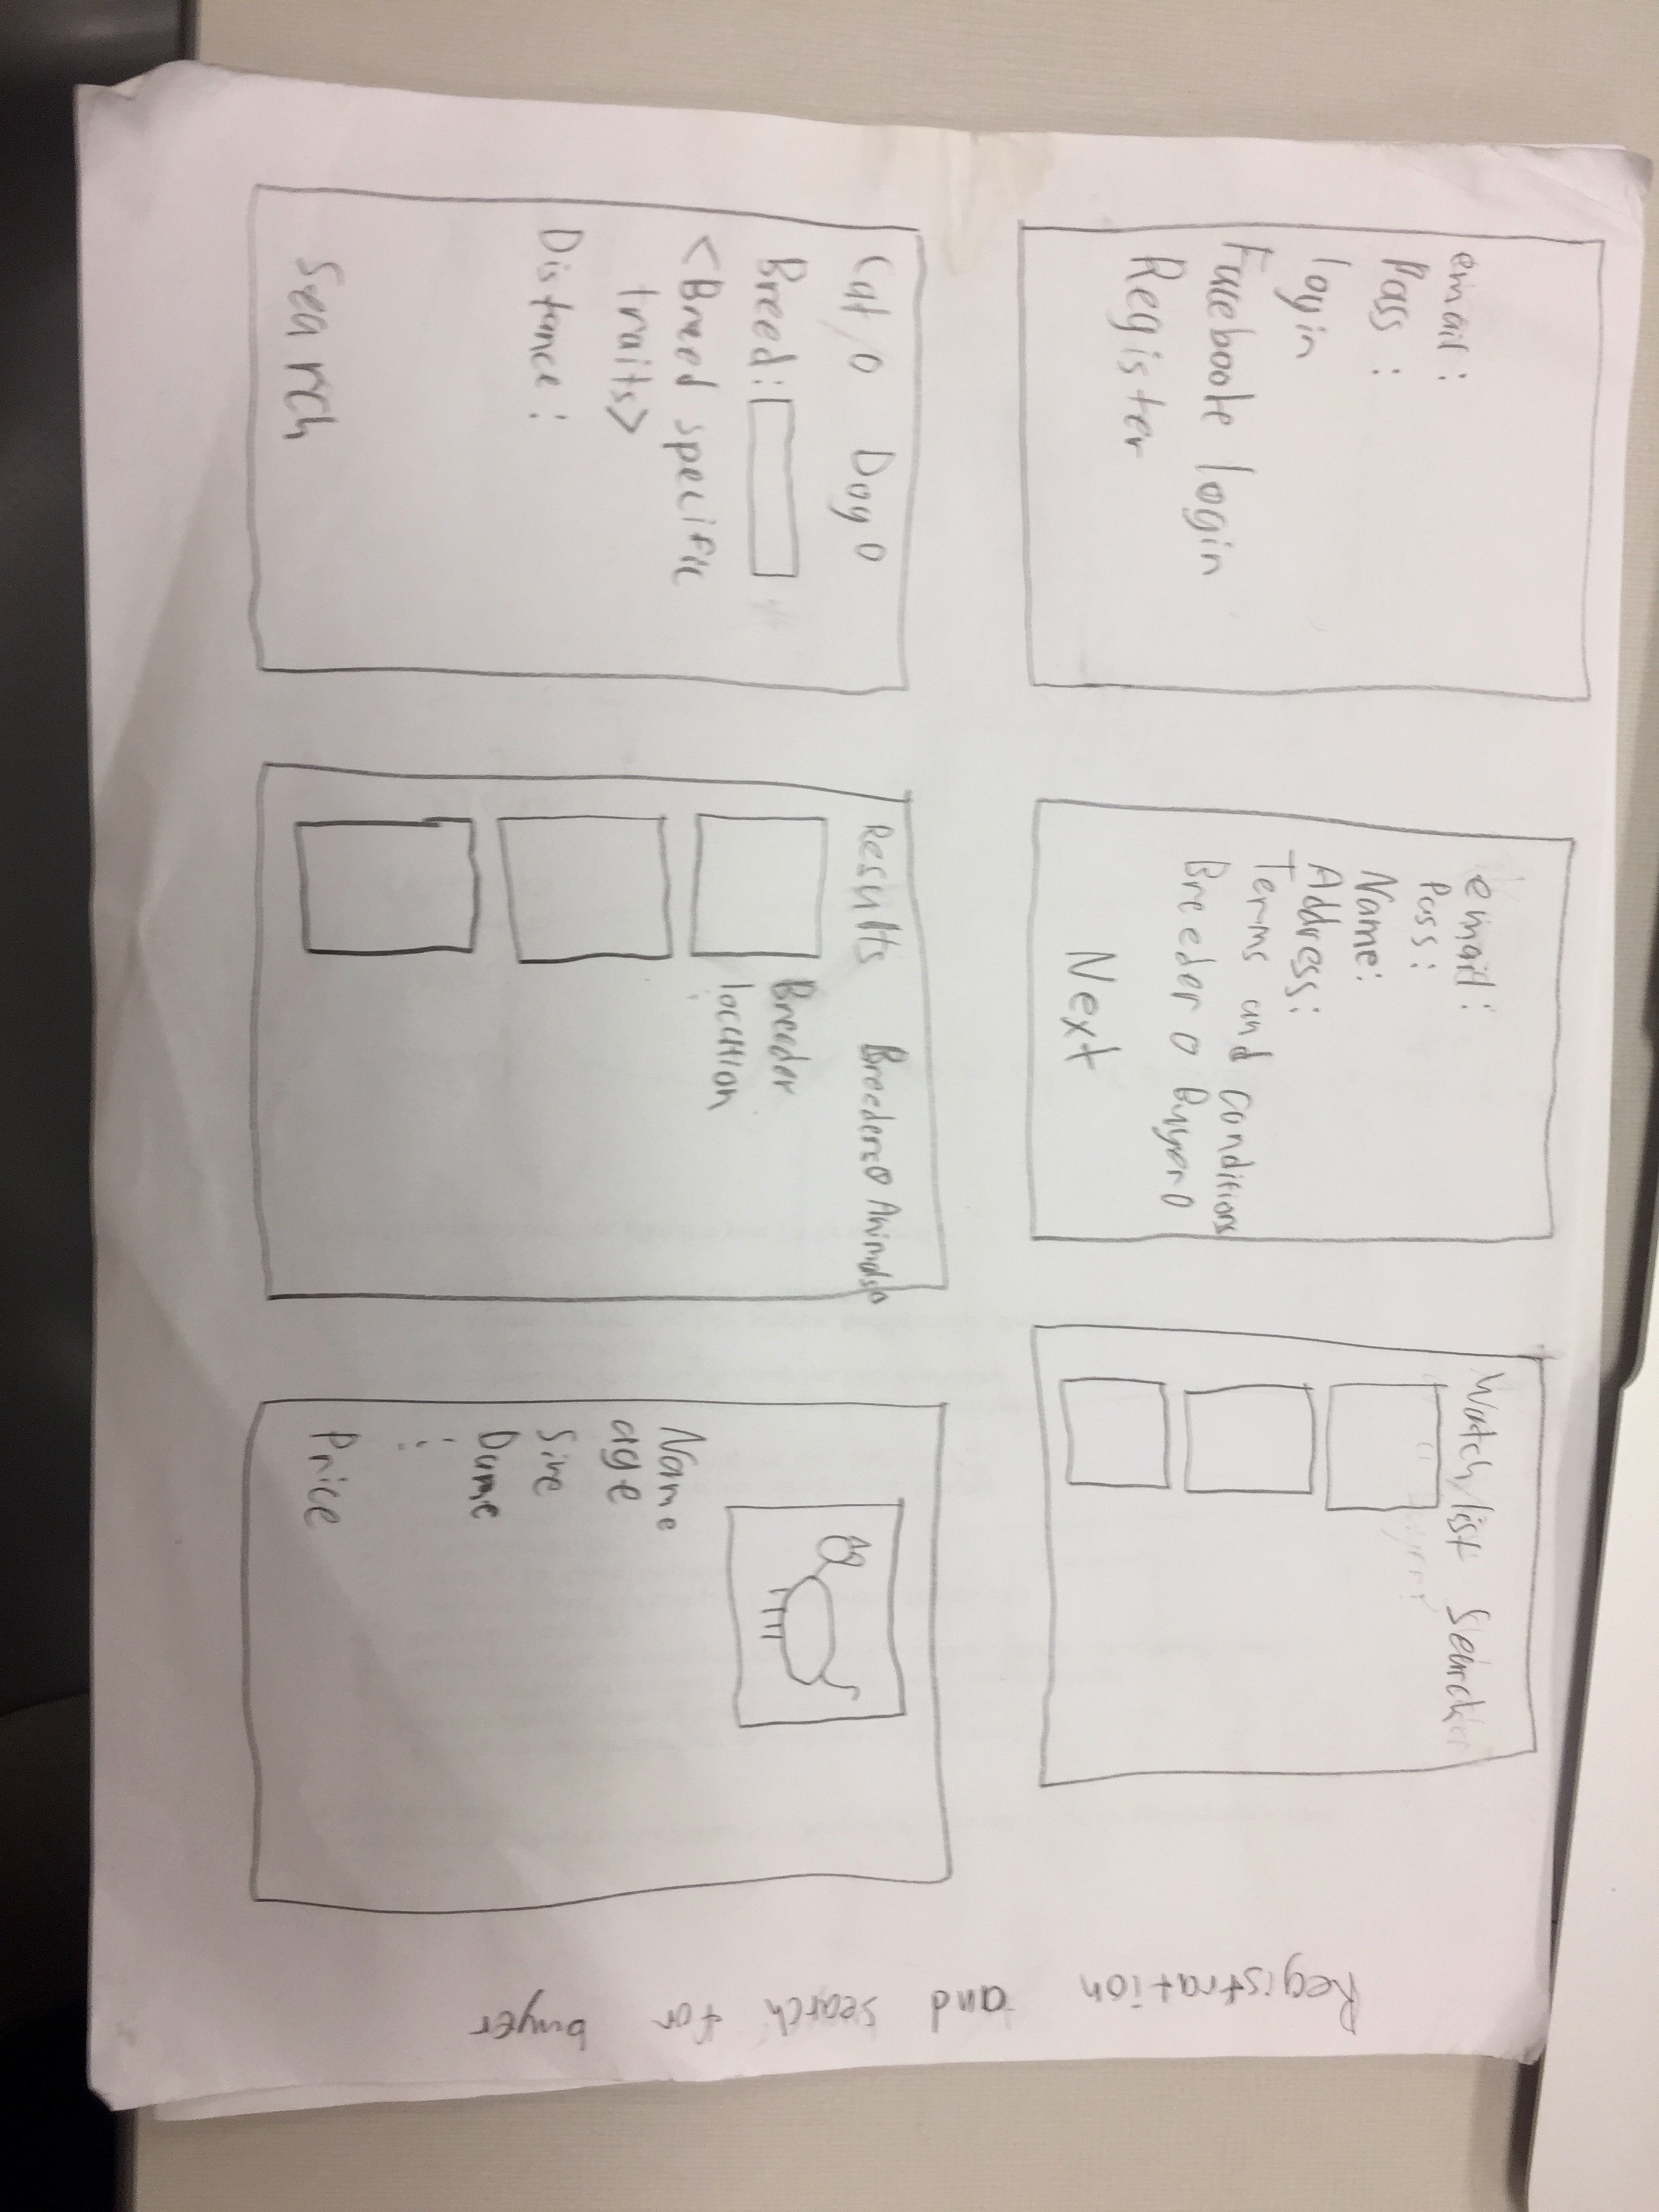 email:
Pass:
login
Facebook login
Register
email:
Pass:
Name:
Address:
Terms and Conditions
Breeder o Buyer o
Next
Watch list Search
Cat o Dog o
Breed:
<Breed specific
traits>
Distance:
Search
Results Breeders o Animals o
Breeder
location
Name
age
Sire
Dame
:
Price
Registration and search for buyer